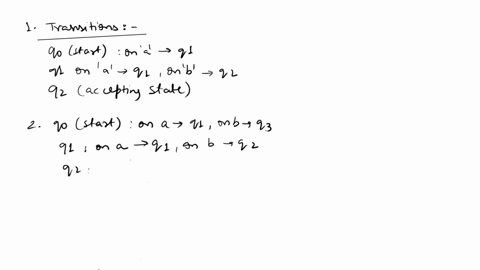 1. Transitions:-
q0 (start) : on 'a' → q1
q1 on 'a' → q1, on 'b' → q2
q2 (accepting state)
2. q0 (start) : on a → q1, on b → q3
q1, on a → q1, on b → q2
q2 :